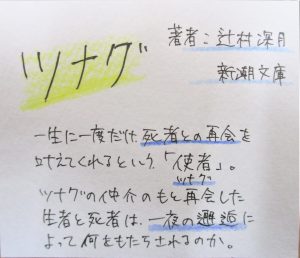 ツナグ
著者：辻村深月
新潮文庫
一生に一度だけ、死者との再会を
叶えてくれるという「使者」。
ツナグ
ツナグの仲介のもと再会した
生者と死者は、一夜の邂逅に
よって何をもたらされるのか。